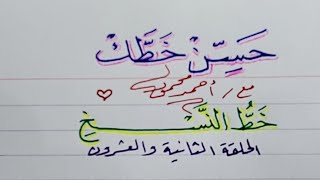 حَسِّنْ خَطَّكَ
مع / أحمد محمود
خَطُّ النَّسْخِ
الحلقة الثانية والعشرون